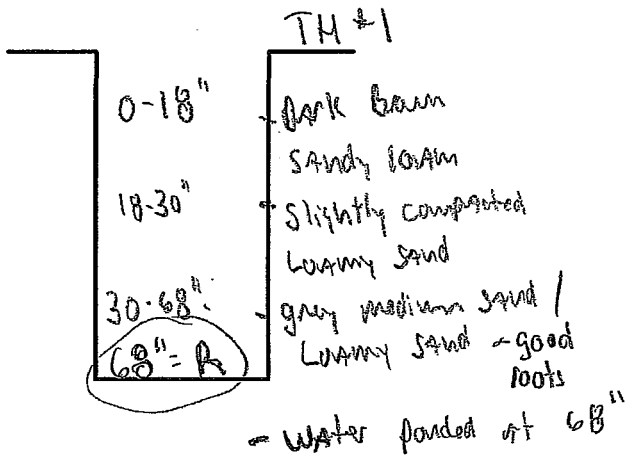 TH #1
0-18" - Dark brown
sandy loam
18-30" - slightly compacted
Loamy sand
30-68": - grey medium sand /
68" = R Loamy sand - good
roots
- water ponded at 68"